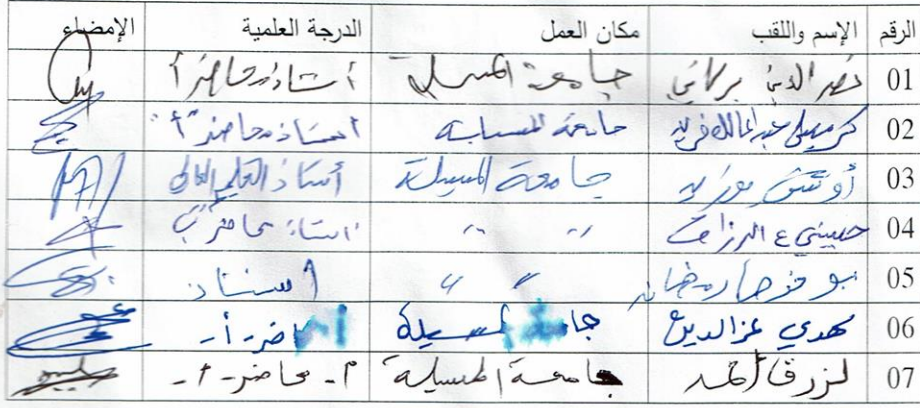 الرقم الإسم واللقب مكان العمل الدرجة العلمية الإمضاء
01 نصر الدين براني جامعة المسيلة أستاذ محاضر أ
02 عبد المالك فريد جامعة المسيلة أستاذ محاضر "أ"
03 جامعة المسيلة أستاذ التعليم العالي
04 حسيني ع الرزاق " " أستاذ محاضر ب
05 رمضان " " أستاذ
06 مهدي عز الدين جامعة المسيلة محاضر -أ-
07 لزرق أحمد جامعة المسيلة أ- محاضر -أ-